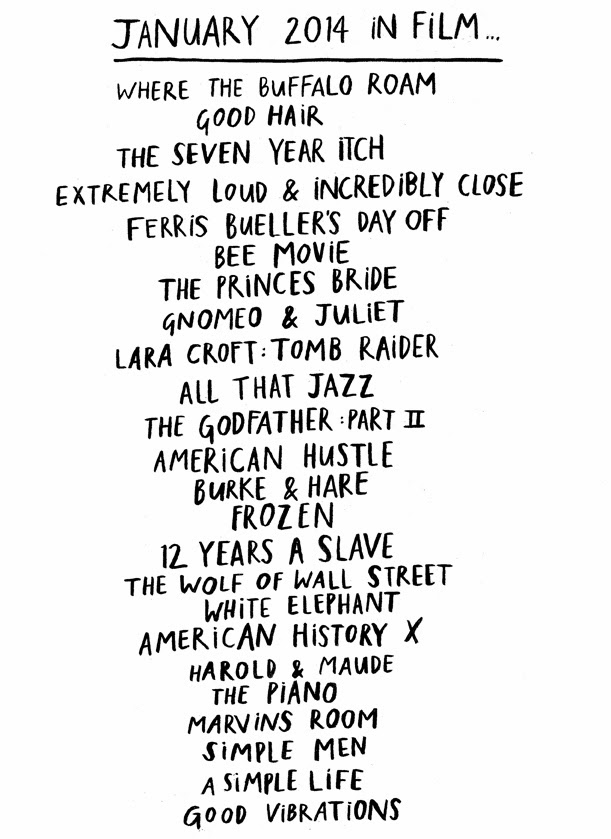 JANUARY 2014 IN FILM...
WHERE THE BUFFALO ROAM
GOOD HAIR
THE SEVEN YEAR ITCH
EXTREMELY LOUD & INCREDIBLY CLOSE
FERRIS BUELLER'S DAY OFF
BEE MOVIE
THE PRINCES BRIDE
GNOMEO & JULIET
LARA CROFT: TOMB RAIDER
ALL THAT JAZZ
THE GODFATHER: PART II
AMERICAN HUSTLE
BURKE & HARE
FROZEN
12 YEARS A SLAVE
THE WOLF OF WALL STREET
WHITE ELEPHANT
AMERICAN HISTORY X
HAROLD & MAUDE
THE PIANO
MARVINS ROOM
SIMPLE MEN
A SIMPLE LIFE
GOOD VIBRATIONS